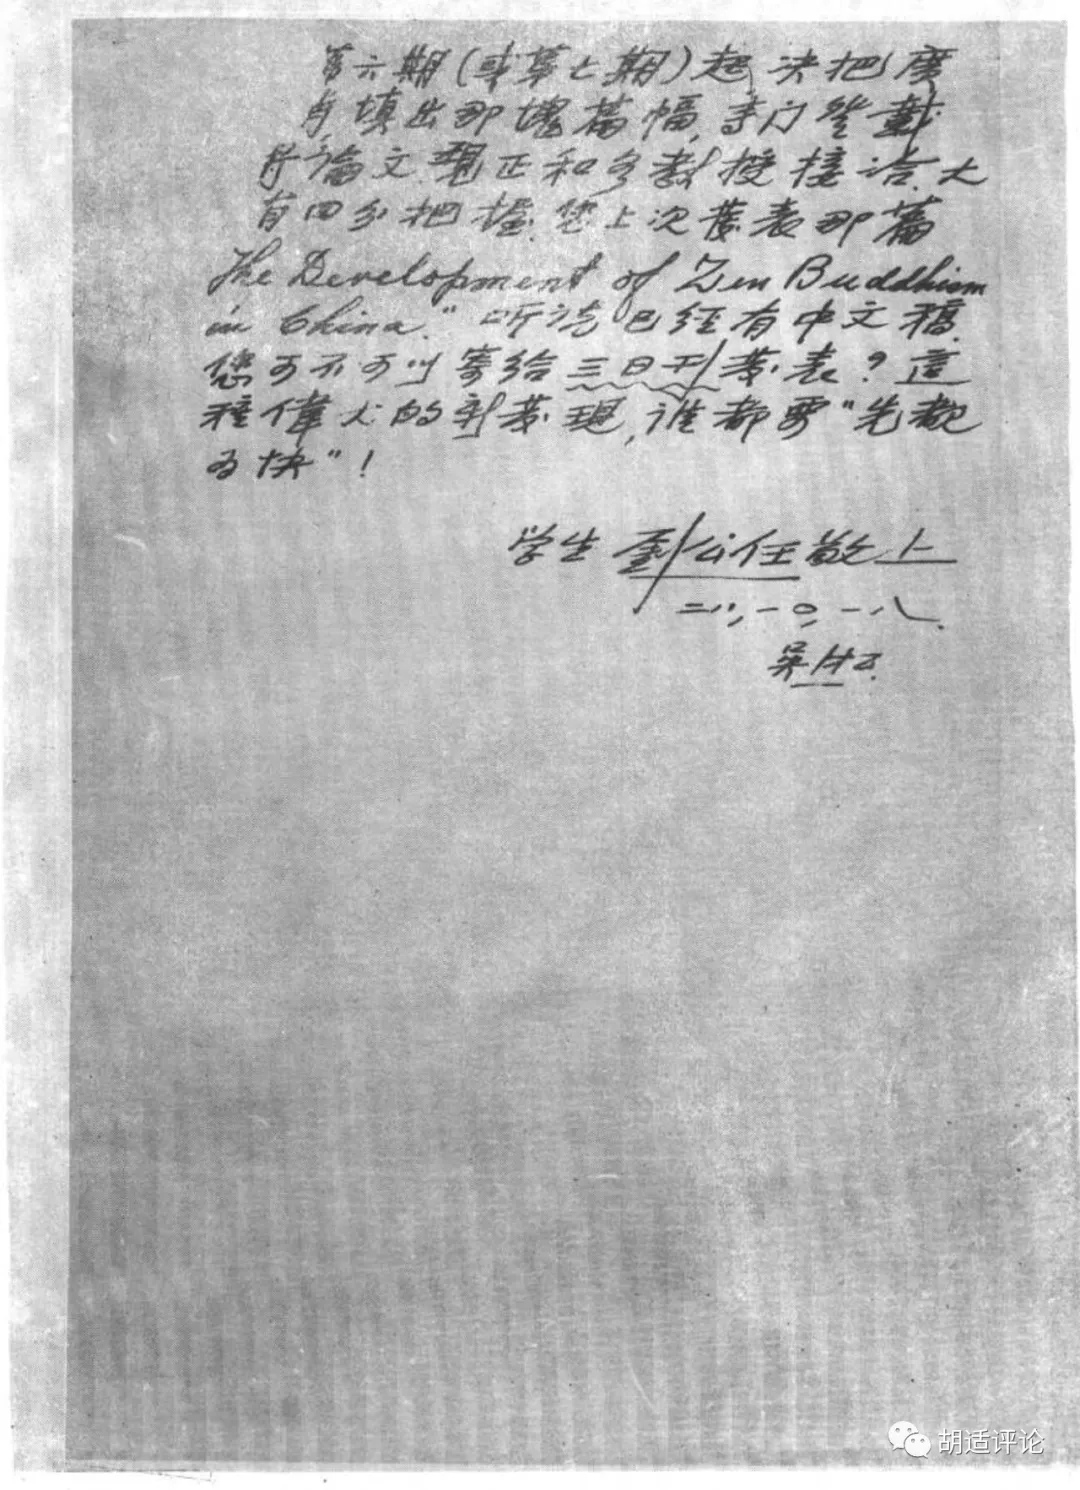 第六期(或第七期)起决把廣
告填出那塊篇幅,专门登載
学術論文.現正和各教授接洽.大
有四分把握.您上次發表那篇
The Development of Zen Buddhism
in China." 听说已经有中文稿.
您可不可以寄给三日刊發表?這
種偉大的新發現,谁都要"先觀
为快"!
学生 劉公任敬上
一〇,一八.
吴淞.
胡适评论